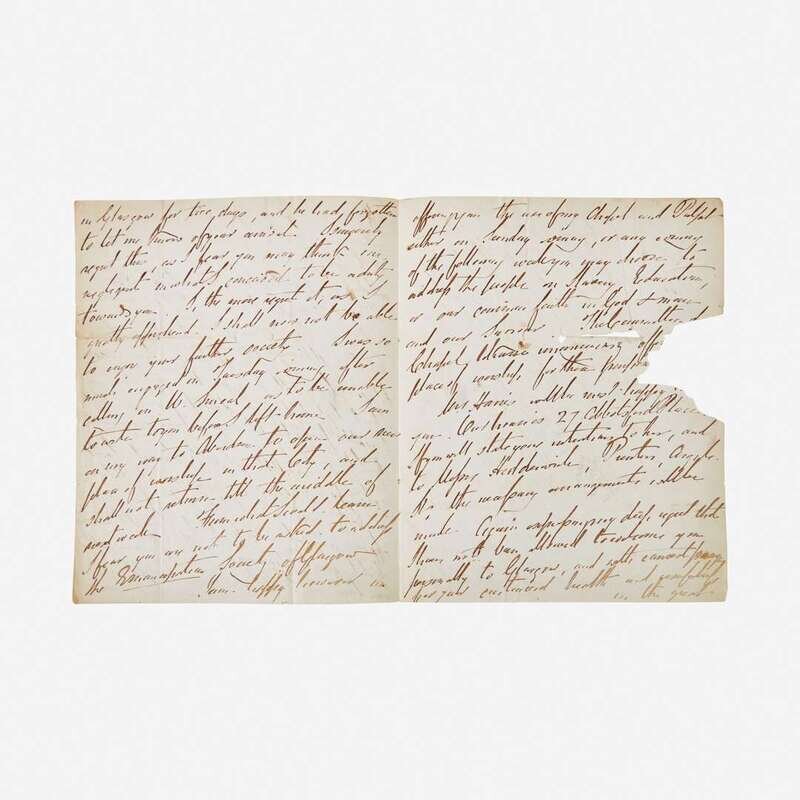 in Glasgow for two days, and he had forgotten
to let me know of your arrival. I sincerely
regret this as I fear you may think me
negligent in what I conceived to be a duty
towards you. I, the more regret it, as I
shall now not be able
to enjoy your further society. I was so
much engaged on Tuesday evening after
calling on W. Smeal, as to be unable
to write to you before I left home. I am
on my way to Aberdeen to open our new
place of worship in that City, and
shall not return till the middle of
next week. From what I could learn
I fear you are not to be asked to address
the Emancipation Society of Glasgow
I am happy however in
offering you the use of my Chapel and Pulpit
either on Sunday evening, or any evening
of the following week you may choose to
address the people on Slavery, Education,
or our common faith in God & man
and our Saviour. The Committee of
Chapel
place of worship for the purpose
Mrs Harris will be most happy
you. Our house is 27 Abbotsford Place
if you will state your intention to her, and
to Messrs Hedderwick, Printers, Argyle
St. the necessary arrangements will be
made. Again expressing my deep regret that
I have not been allowed to welcome you
personally to Glasgow, and with earnest
for your continued health and
in the great